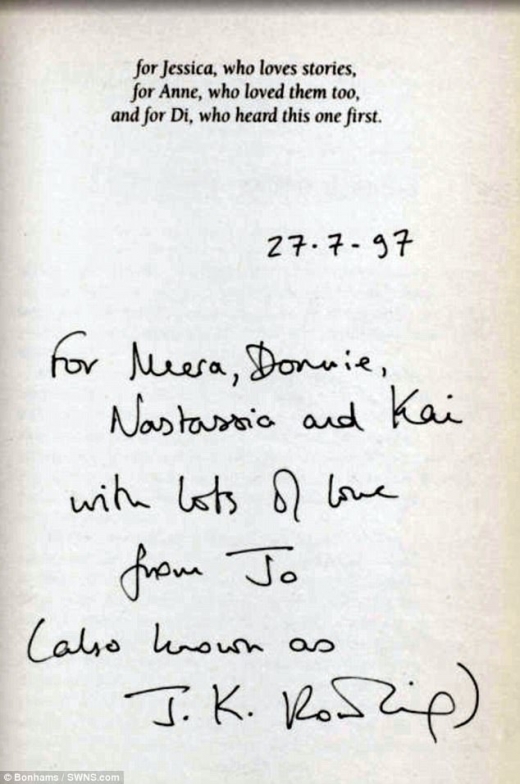 for Jessica, who loves stories,
for Anne, who loved them too,
and for Di, who heard this one first.
27.7-97
For Meera, Donnie,
Nastassia and Kai
with lots of love
from Jo
(also known as
J. K. Rowling)
© Bonhams / SWNS.com